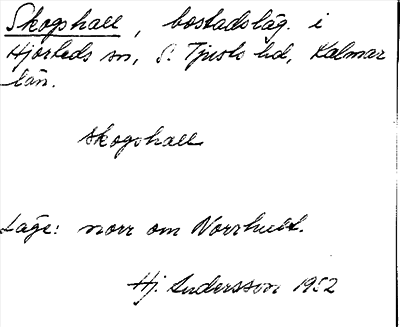 Skogshall, bostadsläg. i
Hjorteds sn, S. Tjusts hd, Kalmar
län.
skogshall
Läge: norr om Norrhult.
Hj. Andersson 1952